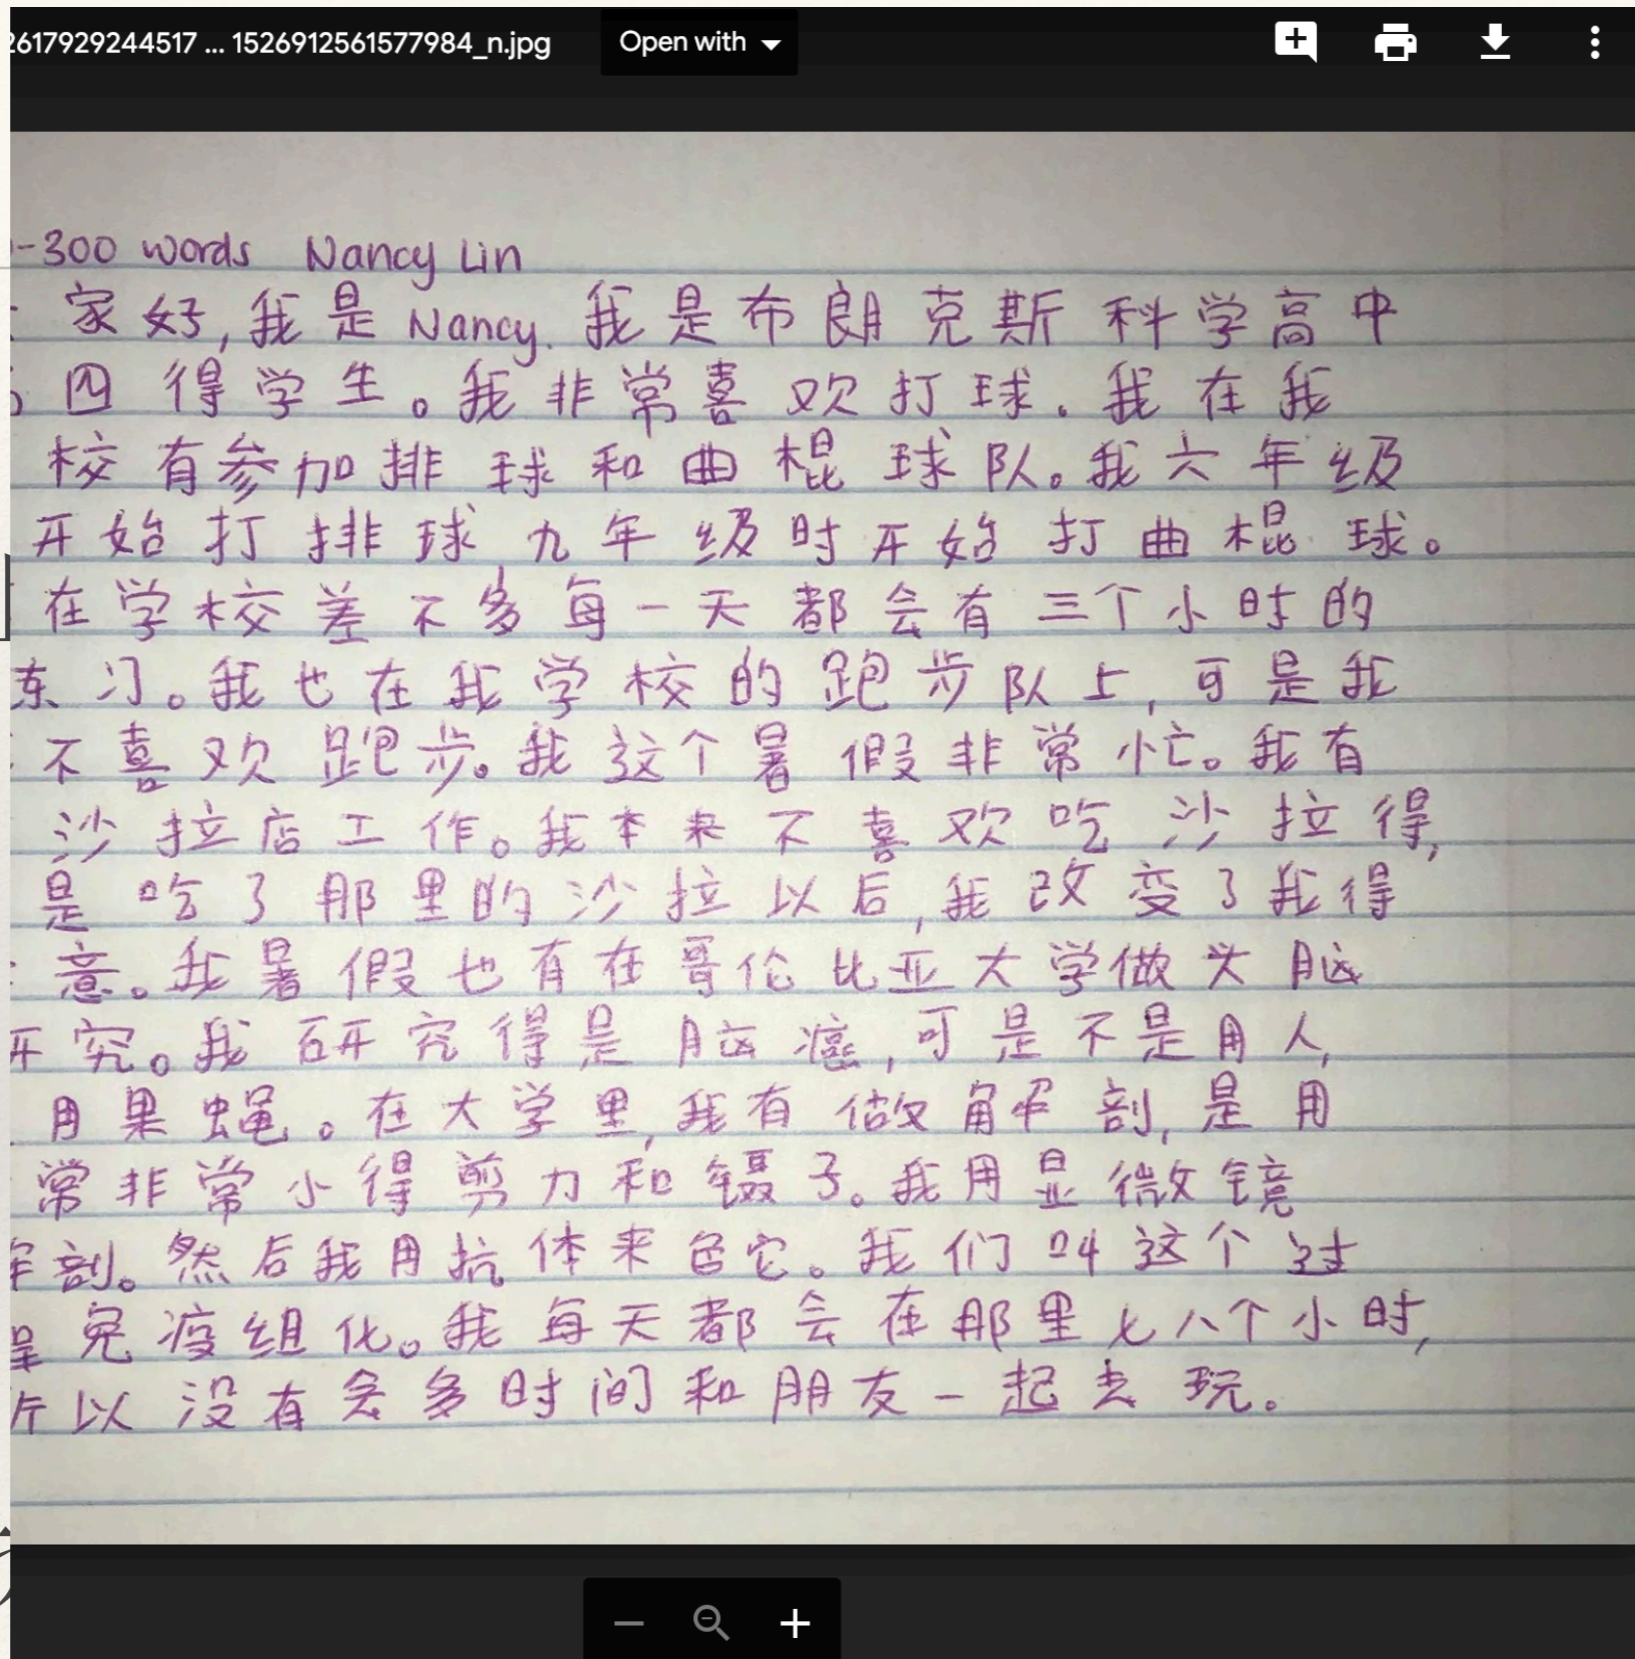 2617929244517 ... 1526912561577984_n.jpg Open with
-300 words Nancy Lin
家好,我是Nancy.我是布朗克斯科学高中
四得学生。我非常喜欢打球.我在我
校有参加排球和曲棍球队。我六年级
开始打排球,九年级时开始打曲棍球。
在学校差不多每一天都会有三个小时的
习。我也在我学校的跑步队上,可是我
不喜欢跑步。我这个暑假非常忙。我有
沙拉店工作。我本来不喜欢吃沙拉得,
是吃了那里的沙拉以后,我改变了我得
意。我暑假也有在哥伦比亚大学做头脑
究。我研究得是脑癌,可是不是用人,
用果蝇。在大学里,我有做解剖,是用
常非常小得剪力和镊子。我用显微镜
剖。然后我用抗体来色它。我们叫这个过
免疫组化。我每天都会在那里七八个小时,
以没有多时间和朋友一起去玩。